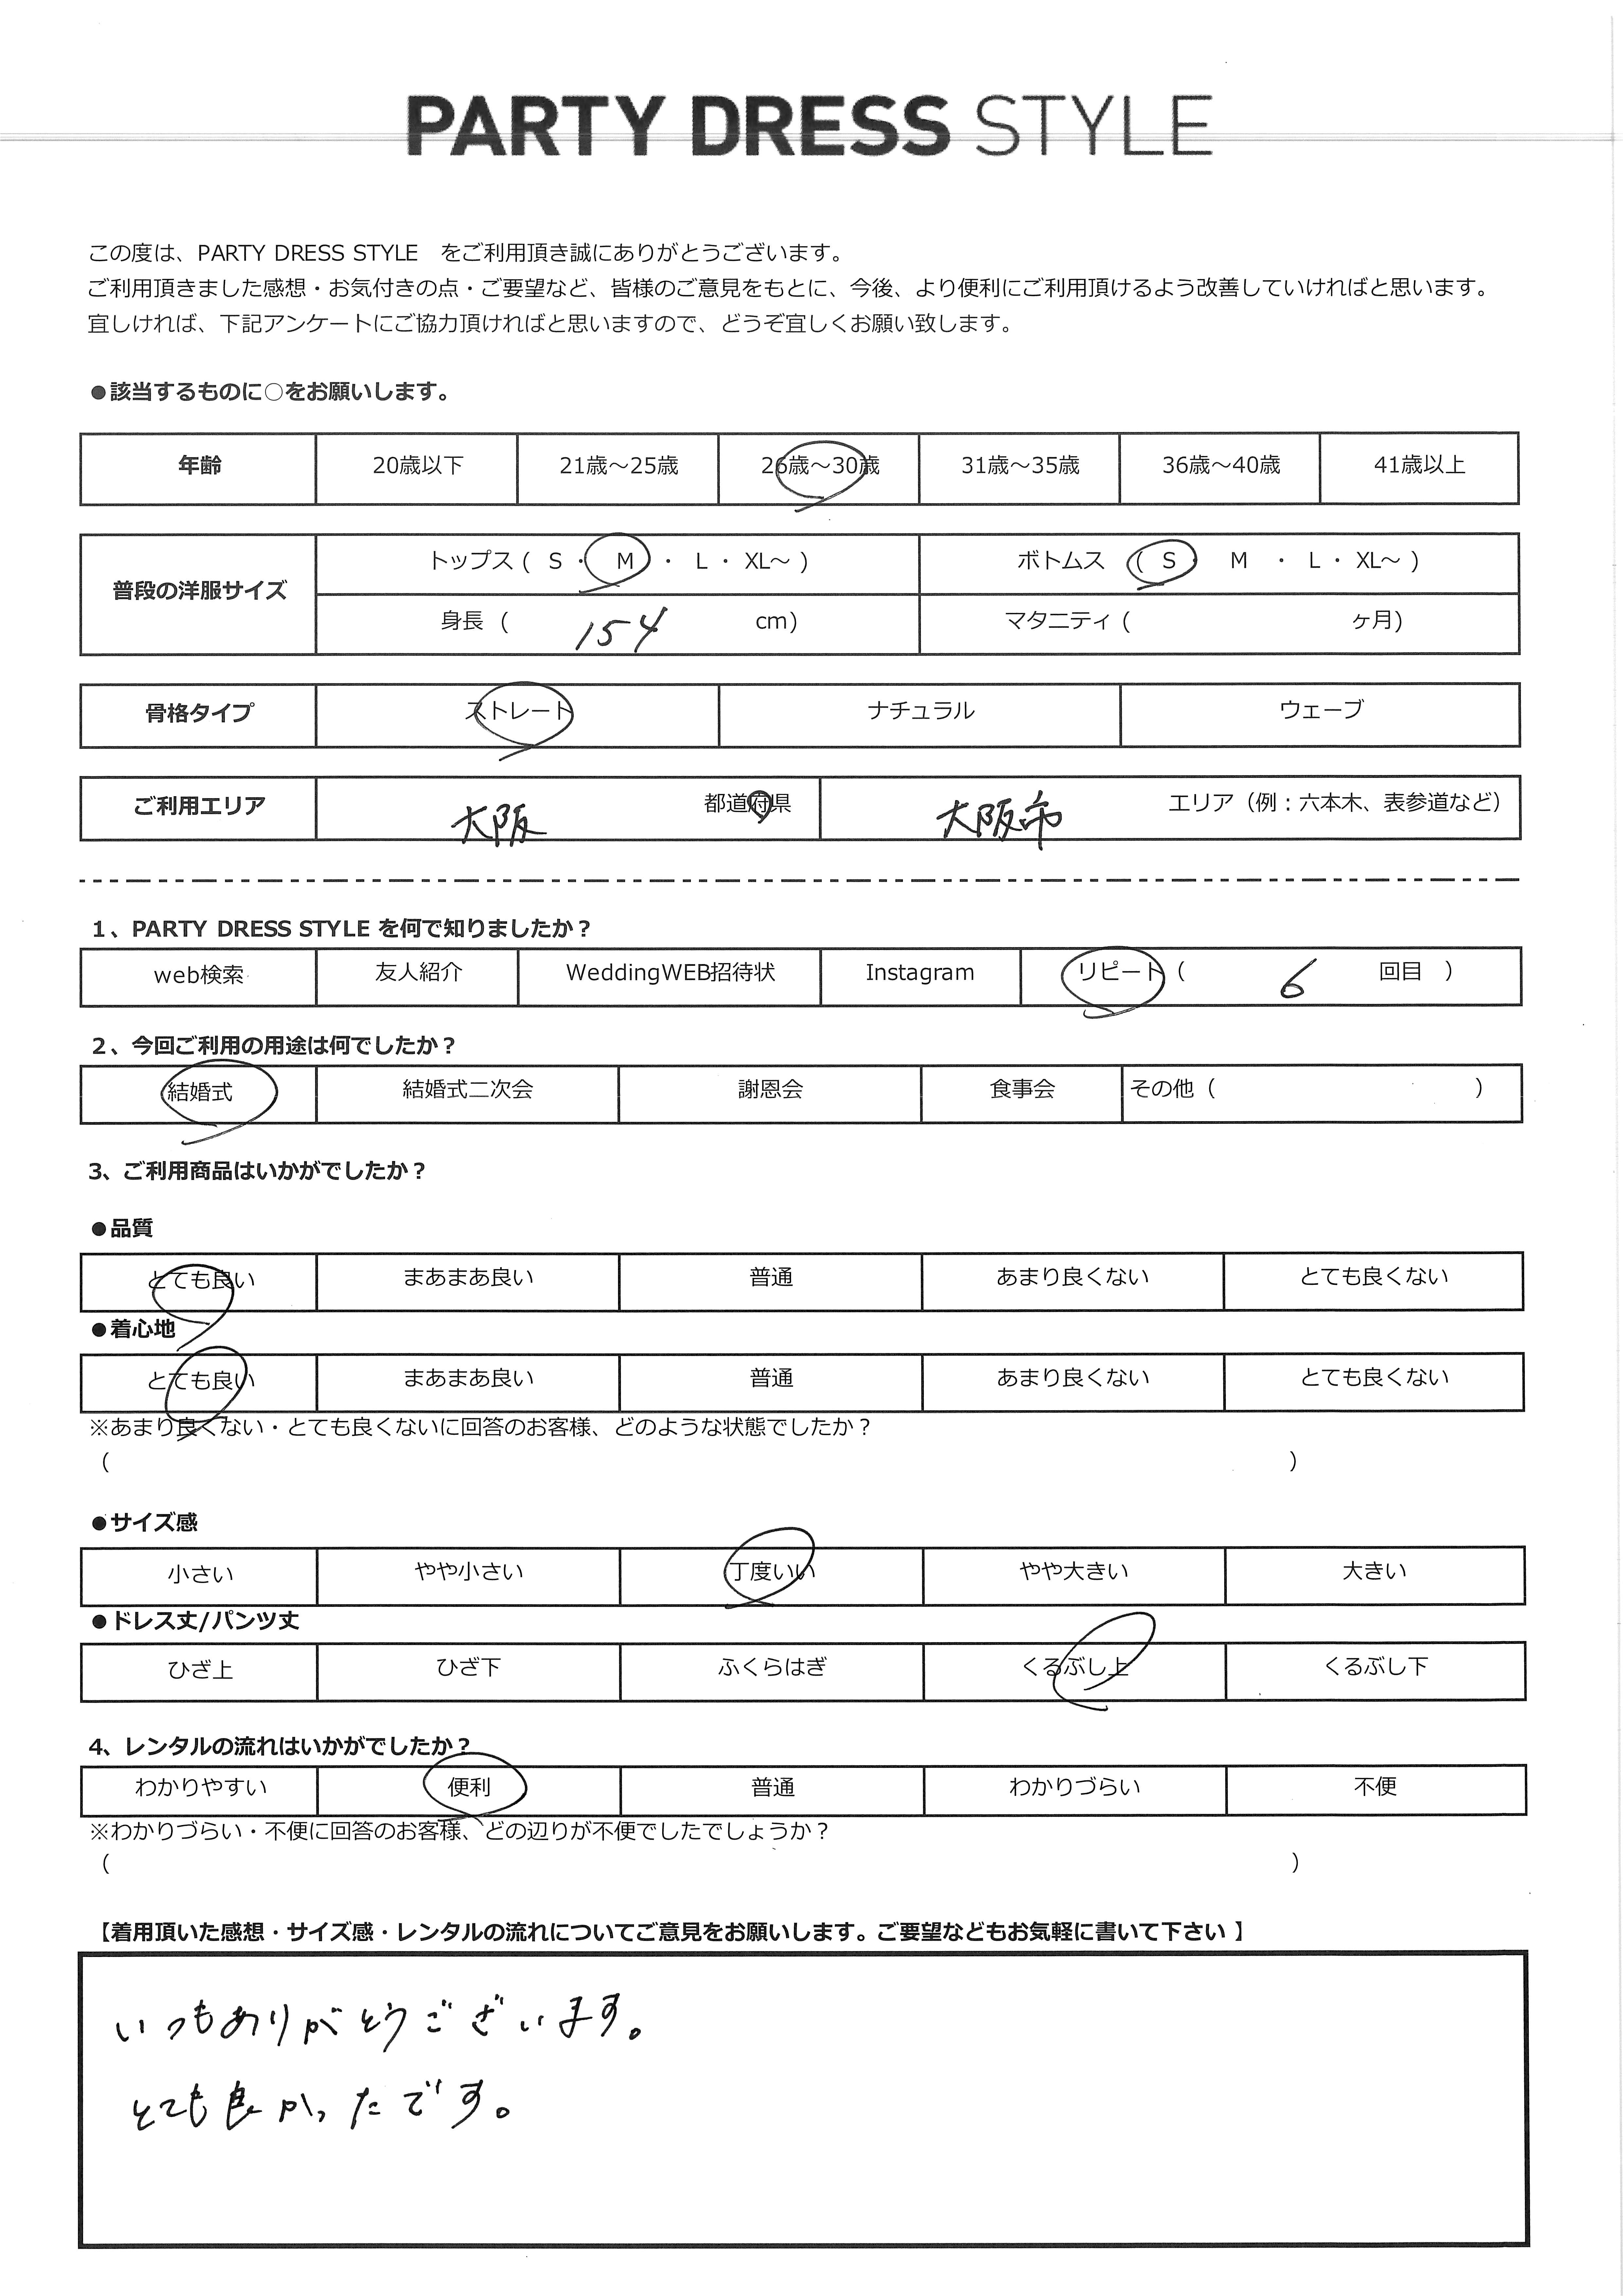 PARTY DRESS STYLE
この度は、PARTY DRESS STYLE　をご利用頂き誠にありがとうございます。
ご利用頂きました感想・お気付きの点・ご要望など、皆様のご意見をもとに、今後、より便利にご利用頂けるよう改善していければと思います。
宜しければ、下記アンケートにご協力頂ければと思いますので、どうぞ宜しくお願い致します。
●該当するものに○をお願いします。
年齢 20歳以下 21歳～25歳 26歳～30歳 31歳～35歳 36歳～40歳 41歳以上
普段の洋服サイズ トップス ( S ・ M ・ L ・ XL～ ) ボトムス ( S ・ M ・ L ・ XL～ )
身長 ( 154 cm) マタニティ ( ヶ月)
骨格タイプ ストレート ナチュラル ウェーブ
ご利用エリア 大阪 都道府県 大阪市 エリア（例：六本木、表参道など）
1、PARTY DRESS STYLE を何で知りましたか？
web検索 友人紹介 WeddingWEB招待状 Instagram リピート ( 6 回目 )
2、今回ご利用の用途は何でしたか？
結婚式 結婚式二次会 謝恩会 食事会 その他 ( )
3、ご利用商品はいかがでしたか？
●品質
とても良い まあまあ良い 普通 あまり良くない とても良くない
●着心地
とても良い まあまあ良い 普通 あまり良くない とても良くない
※あまり良くない・とても良くないに回答のお客様、どのような状態でしたか？
( )
●サイズ感
小さい やや小さい 丁度いい やや大きい 大きい
●ドレス丈/パンツ丈
ひざ上 ひざ下 ふくらはぎ くるぶし上 くるぶし下
4、レンタルの流れはいかがでしたか？
わかりやすい 便利 普通 わかりづらい 不便
※わかりづらい・不便に回答のお客様、どの辺りが不便でしたでしょうか？
( )
【着用頂いた感想・サイズ感・レンタルの流れについてご意見をお願いします。ご要望などもお気軽に書いて下さい 】
いつもありがとうございます。
とても良かったです。